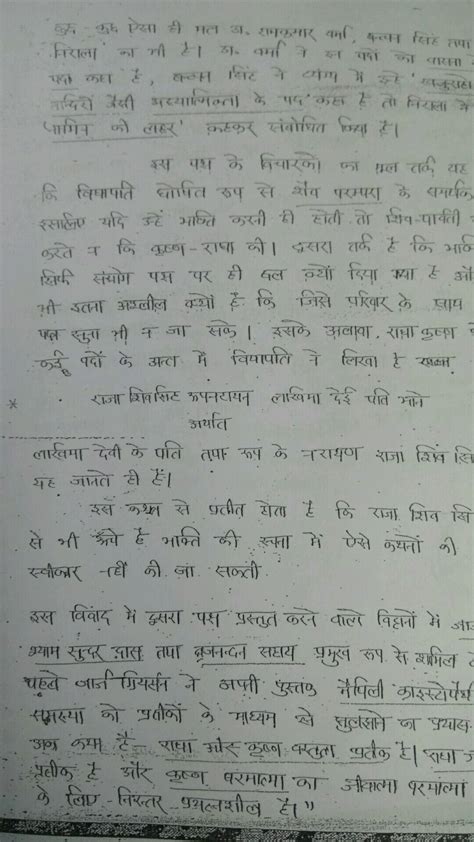 कुछ - कुछ ऐसा ही मत डा. रामकुमार वर्मा, बच्चन सिंह तथा
निराला का भी है। डा. वर्मा ने इन पदों को वासना
पद्य कहा है, बच्चन सिंह ने व्यंग्य में इन्हें 'खजुराहो
मन्दिरों जैसी अध्यात्मिकता के पद' कहा है तो निराला ने
नागिन की लहर' कहकर संबोधित किया है।
इस पक्ष के विचारकों का मूल तर्क यह
कि विद्यापति घोषित रूप से शैव परम्परा के समर्थक
इसलिए यदि उन्हें भक्ति करनी ही होती तो शिव-पार्वती
करते न कि कृष्ण-राधा की। दूसरा तर्क है कि भक्ति
सिर्फ संयोग पक्ष पर ही बल क्यों दिया गया है और
भी इतना अश्लील क्यों है कि जिसे परिवार के साथ
पढ़ा सुना भी न जा सके। इसके अलावा, राधा कृष्ण
कई पदों के अन्त में विद्यापति ने लिखा है
* राजा शिवसिंह रूपनरायन लखिमा देई पति भाने
अर्थात
लखिमा देवी के पति तथा रूप के नारायण राजा शिव सिं
यह जानते ही हैं।
इस कथन से प्रतीत होता है कि राजा शिव सिं
से भी ऊँचे है भक्ति की रचना में ऐसे कथनों को
स्वीकार नहीं की जा सकती
इस विवाद में दूसरा पक्ष प्रस्तुत करने वाले विद्वानों में
श्याम सुन्दर दास तथा बृजनन्दन सहाय प्रमुख रूप से शामिल
पहले जार्ज ग्रियर्सन ने अपनी पुस्तक मैथिली
समस्या को प्रतीकों के माध्यम से सुलझाने का प्रयास
राधा और कृष्ण वस्तुतः प्रतीक है। राधा
प्रतीक है और कृष्ण परमात्मा का जीवात्मा परमात्मा
के लिए निरन्तर प्रयत्नशील है।"